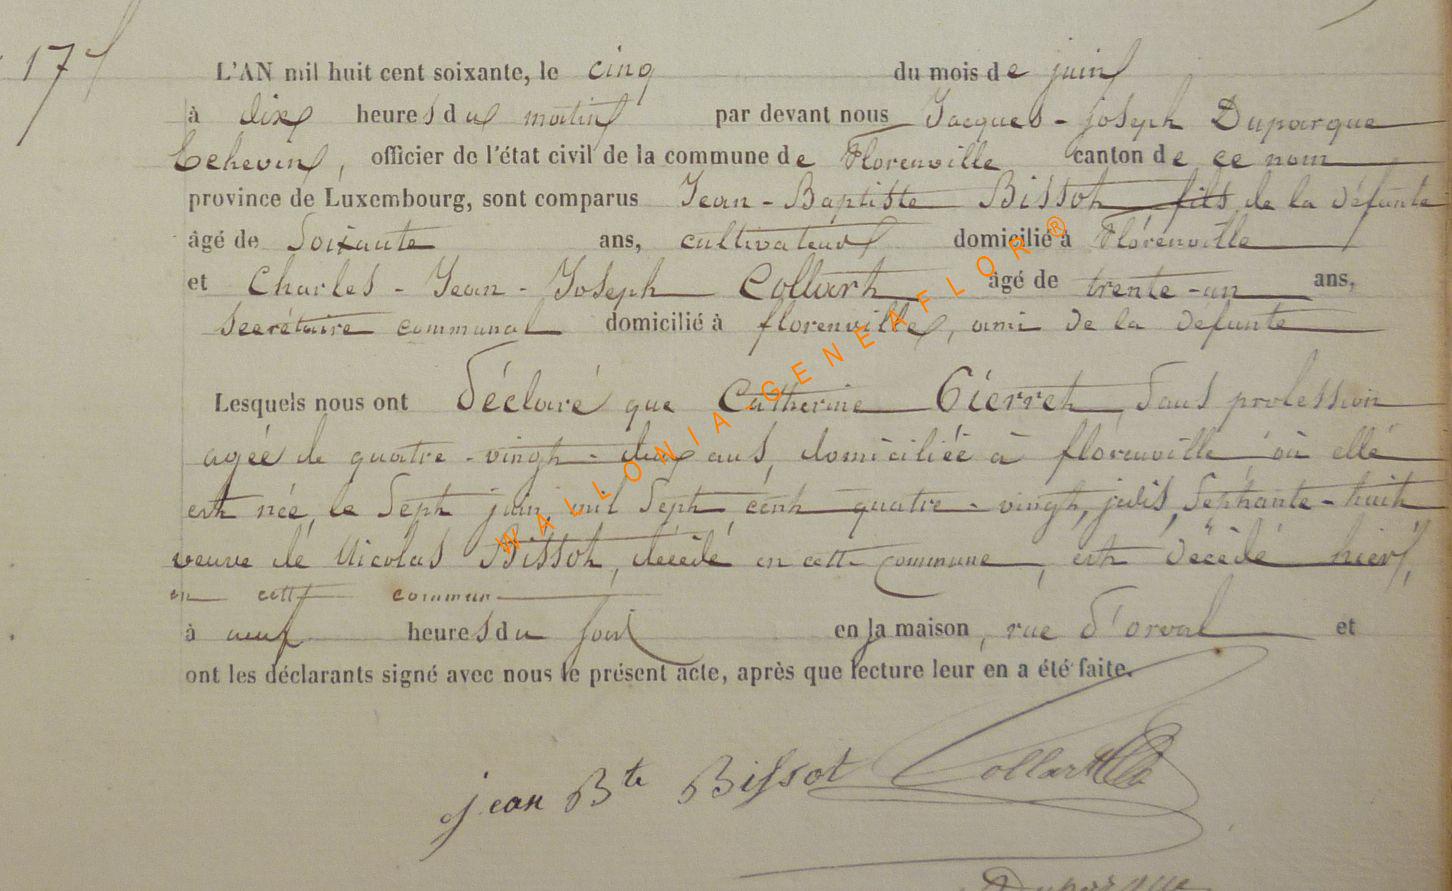 17
L'AN mil huit cent soixante, le cinq du mois de juin
à dix heures du matin par devant nous Jacques-joseph Duparque
Echevin, officier de l'état civil de la commune de Florenville canton de ce nom
province de Luxembourg, sont comparus Jean-Baptiste Bissot fils de la défunte
âgé de Soixante ans, cultivateur domicilié à Florenville
et Charles-Jean-Joseph Collart âgé de trente-un ans,
Secrétaire communal domicilié à florenville, ami de la défunte
Lesquels nous ont déclaré que Catherine Pierret Sans profession
agée de quatre-vingt-deux ans, domiciliée à florenville où elle
est née, le Sept juin mil Sept cent quatre-vingt, jadis, Septante-huit
veuve de Nicolas Bissot, décédé en cette commune, est décédé hier,
en cette commun
à neuf heures du soir en la maison, rue d'orval et
ont les déclarants signé avec nous le présent acte, après que lecture leur en a été faite.
jean Bte Bissot Collart
Duparque
WALLONIA GENEAFLOR®